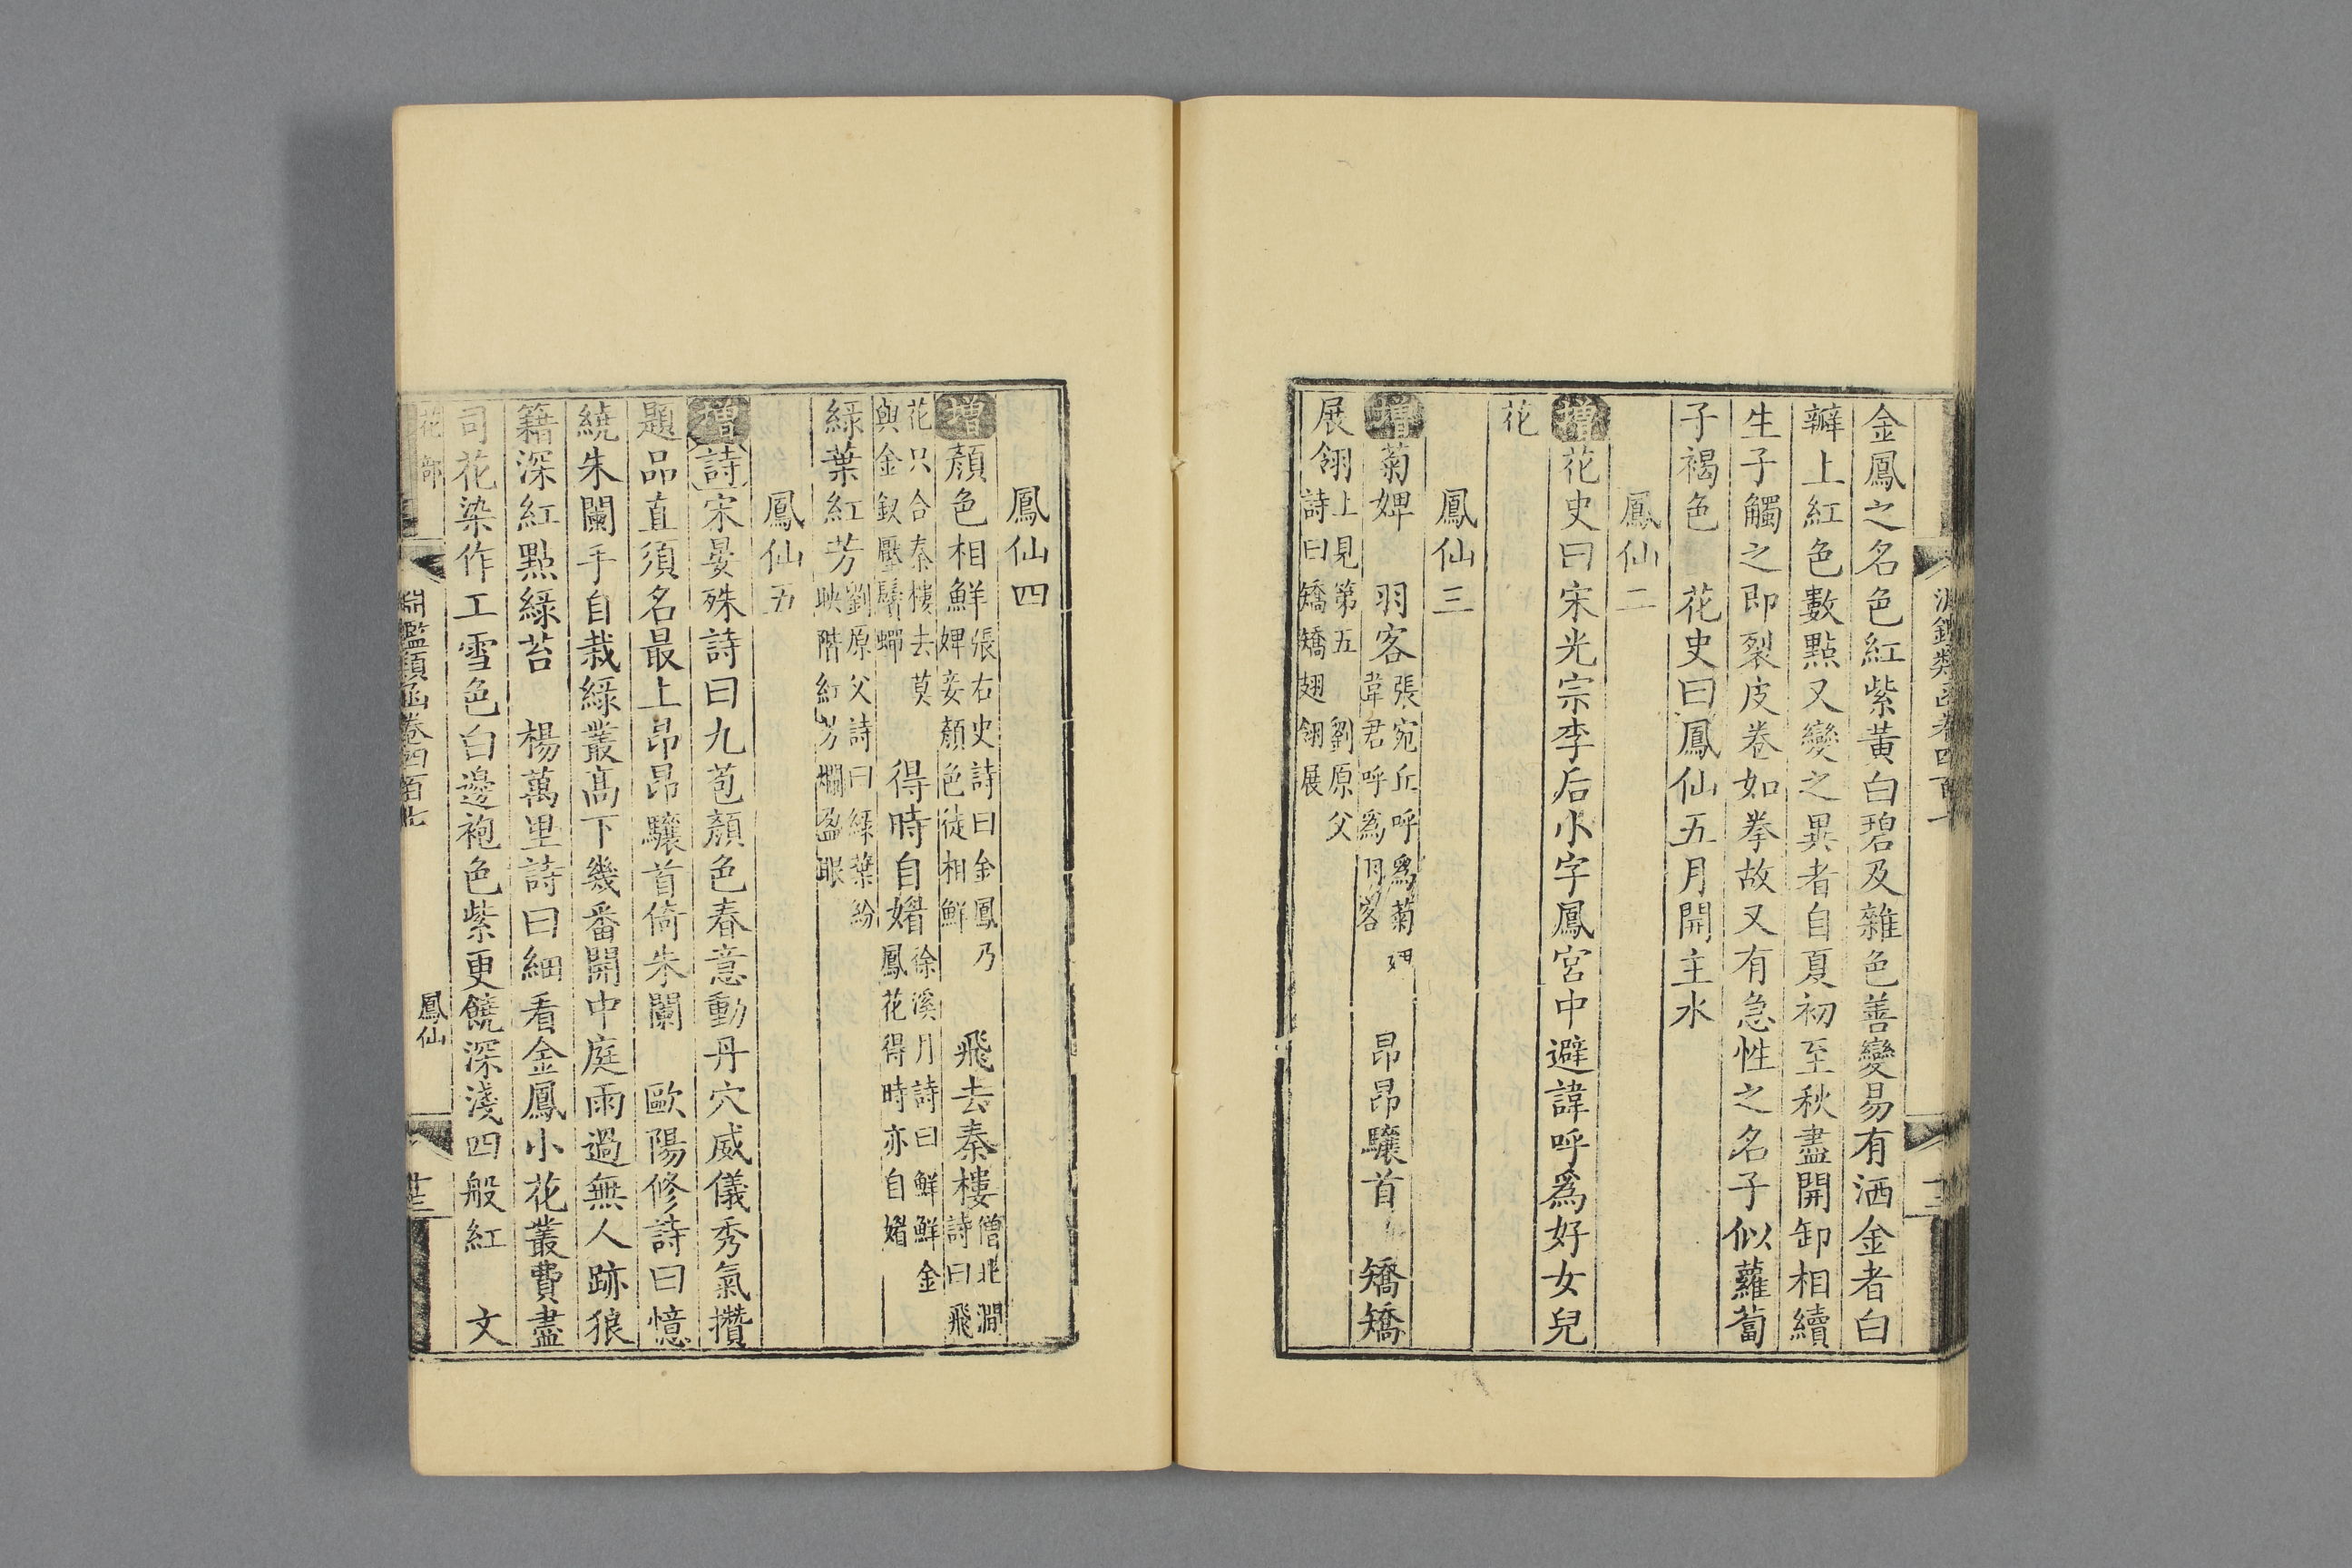 金鳳之名色紅紫黃白碧及雜色善變易有洒金者白
瓣上紅色數點又變之異者自夏初至秋盡開卸相續
生子觸之即裂皮卷如拳故又有急性之名子似蘿蔔
子褐色　花史曰鳳仙五月開主水
鳳仙二
增花史曰宋光宗李后小字鳳宮中避諱呼爲好女兒
花
鳳仙三
增菊婢　羽客張宛丘呼爲菊婢韋君呼爲羽客　昂昂驤首　矯矯
展翎上見第五　劉原父詩曰矯矯翅翎展
鳳仙四
增顏色相鮮張右史詩曰金鳳乃婢妾顏色徒相鮮　飛去秦樓僧北澗詩曰飛
花只合秦樓去莫與金釵壓鬢蟬　得時自媚徐溪月詩曰鮮鮮金鳳花得時亦自媚
綠葉紅芳劉原父詩曰綠葉紛映階紅芳欄盈眼
鳳仙五
增詩宋晏殊詩曰九苞顏色春意動丹穴威儀秀氣攢
題品直須名最上昂昂驤首倚朱闌　歐陽修詩曰憶
繞朱闌手自栽綠叢高下幾番開中庭雨過無人跡狼
籍深紅點綠苔　楊萬里詩曰細看金鳳小花叢費盡
司花染作工雪色白邊袍色紫更饒深淺四般紅　文
花部
淵鑑類函卷四百七
鳳仙